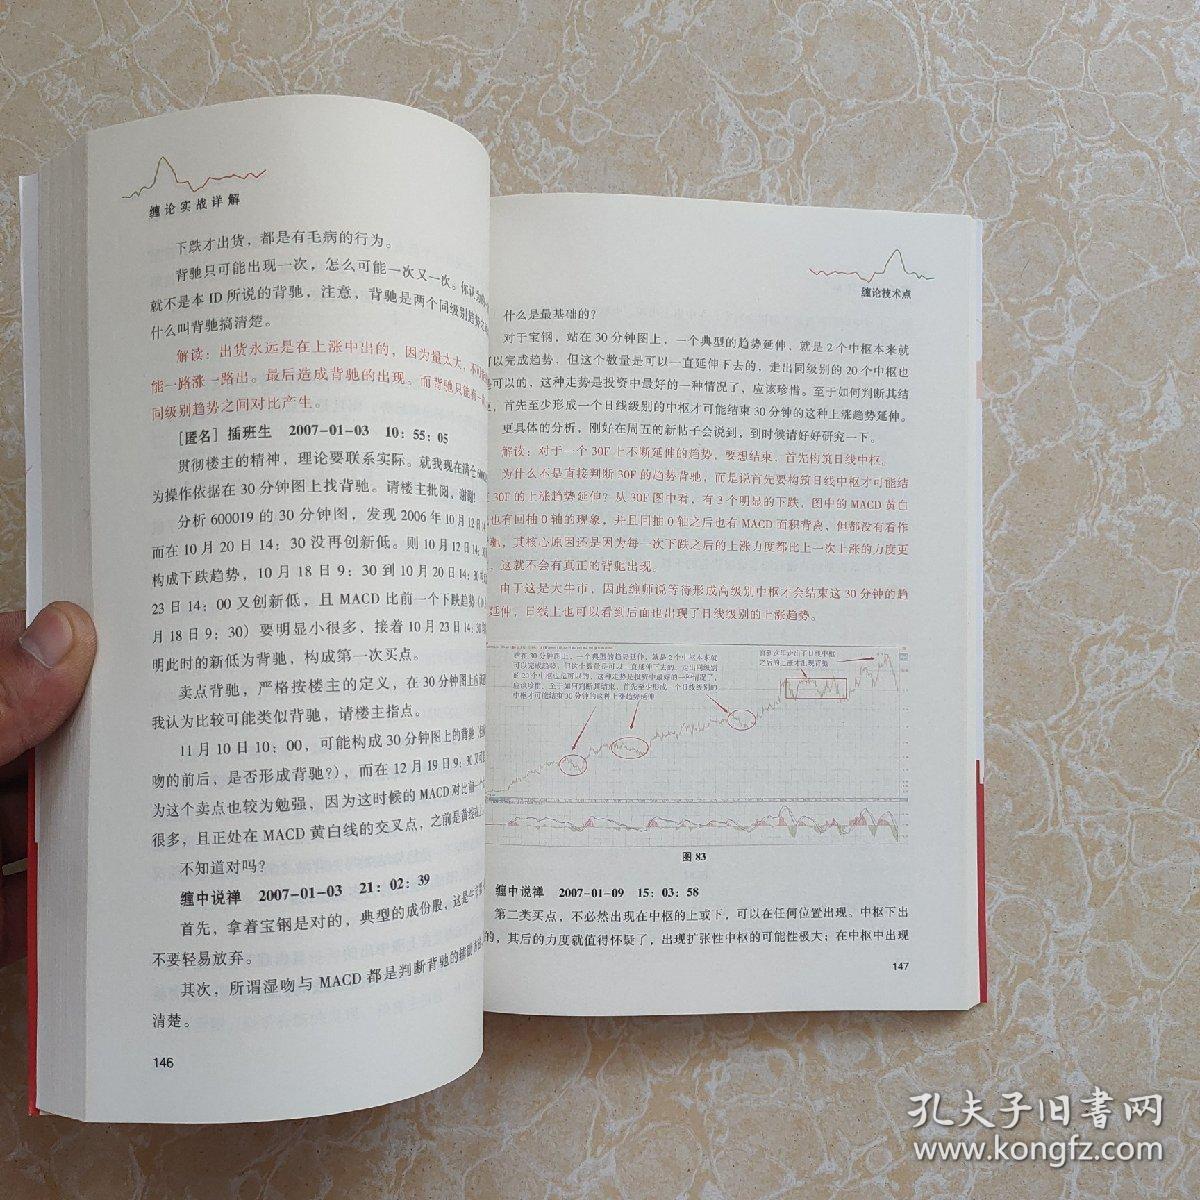 缠论实战详解
下跌才出货，都是有毛病的行为。
背驰只可能出现一次，怎么可能一次又一次。你认为的
就不是本ID所说的背驰，注意，背驰是两个同级别趋势之
什么叫背驰搞清楚。
解读：出货永远是在上涨中出的，因为量太大，不可
能一路涨一路出。最后造成背驰的出现。而背驰只能
同级别趋势之间对比产生。
[匿名] 插班生 2007-01-03 10：55：05
贯彻楼主的精神，理论要联系实际。就我现在满仓
为操作依据在30分钟图上找背驰。请楼主批阅，谢谢！
分析600019的30分钟图，发现2006年10月12日
而在10月20日14：30没再创新低。则10月12日14：30
构成下跌趋势，10月18日9：30到10月20日14：30
23日14：00又创新低，且MACD比前一个下跌趋势（
月18日9：30）要明显小很多，接着10月23日14：30
明此时的新低为背驰，构成第一次买点。
卖点背驰，严格按楼主的定义，在30分钟图上
我认为比较可能类似背驰，请楼主指点。
11月10日10：00，可能构成30分钟图上的背驰
吻的前后，是否形成背驰？），而在12月19日9：30
为这个卖点也较为勉强，因为这时候的MACD对比前一
很多，且正处在MACD黄白线的交叉点，之前是黄
不知道对吗？
缠中说禅 2007-01-03 21：02：39
首先，拿着宝钢是对的，典型的成份股，这是牛
不要轻易放弃。
其次，所谓湿吻与MACD都是判断背驰的辅助
清楚。
146
缠论技术点
什么是最基础的？
对于宝钢，站在30分钟图上，一个典型的趋势延伸，就是2个中枢本来就
可以完成趋势，但这个数量是可以一直延伸下去的，走出同级别的20个中枢也
可以的，这种走势是投资中最好的一种情况了，应该珍惜。至于如何判断其结
，首先至少形成一个日线级别的中枢才可能结束30分钟的这种上涨趋势延伸。
更具体的分析，刚好在周五的新帖子会说到，到时候请好好研究一下。
解读：对于一个30F上不断延伸的趋势，要想结束，首先构筑日线中枢。
为什么不是直接判断30F的趋势背驰，而是说首先要构筑日线中枢才可能结
30F的上涨趋势延伸？从30F图中看，有3个明显的下跌，图中的MACD黄白
也有回抽0轴的现象，并且回抽0轴之后也有MACD面积背离，但都没有看作
驰，其核心原因还是因为每一次下跌之后的上涨力度都比上一次上涨的力度更
，这就不会有真正的背驰出现。
由于这是大牛市，因此缠师说等待形成高级别中枢才会结束这30分钟的趋
延伸，日线上也可以看到后面也出现了日线级别的上涨趋势。
站在30分钟图上，一个典型的趋势延伸，就是2个中枢本来就
可以完成趋势，但这个数量是可以一直延伸下去的，走出同级别
的20个中枢也是可以的，这种走势是投资中最好的一种情况了，
应该珍惜。至于如何判断其结束，首先至少形成一个日线级别的
中枢才可能结束30分钟的这种上涨趋势延伸
图83
缠中说禅 2007-01-09 15：03：58
第二类买点，不必然出现在中枢的上或下，可以在任何位置出现。中枢下出
的，其后的力度就值得怀疑了，出现扩张性中枢的可能性极大；在中枢中出现
147
孔夫子旧书网
www.kongfz.com